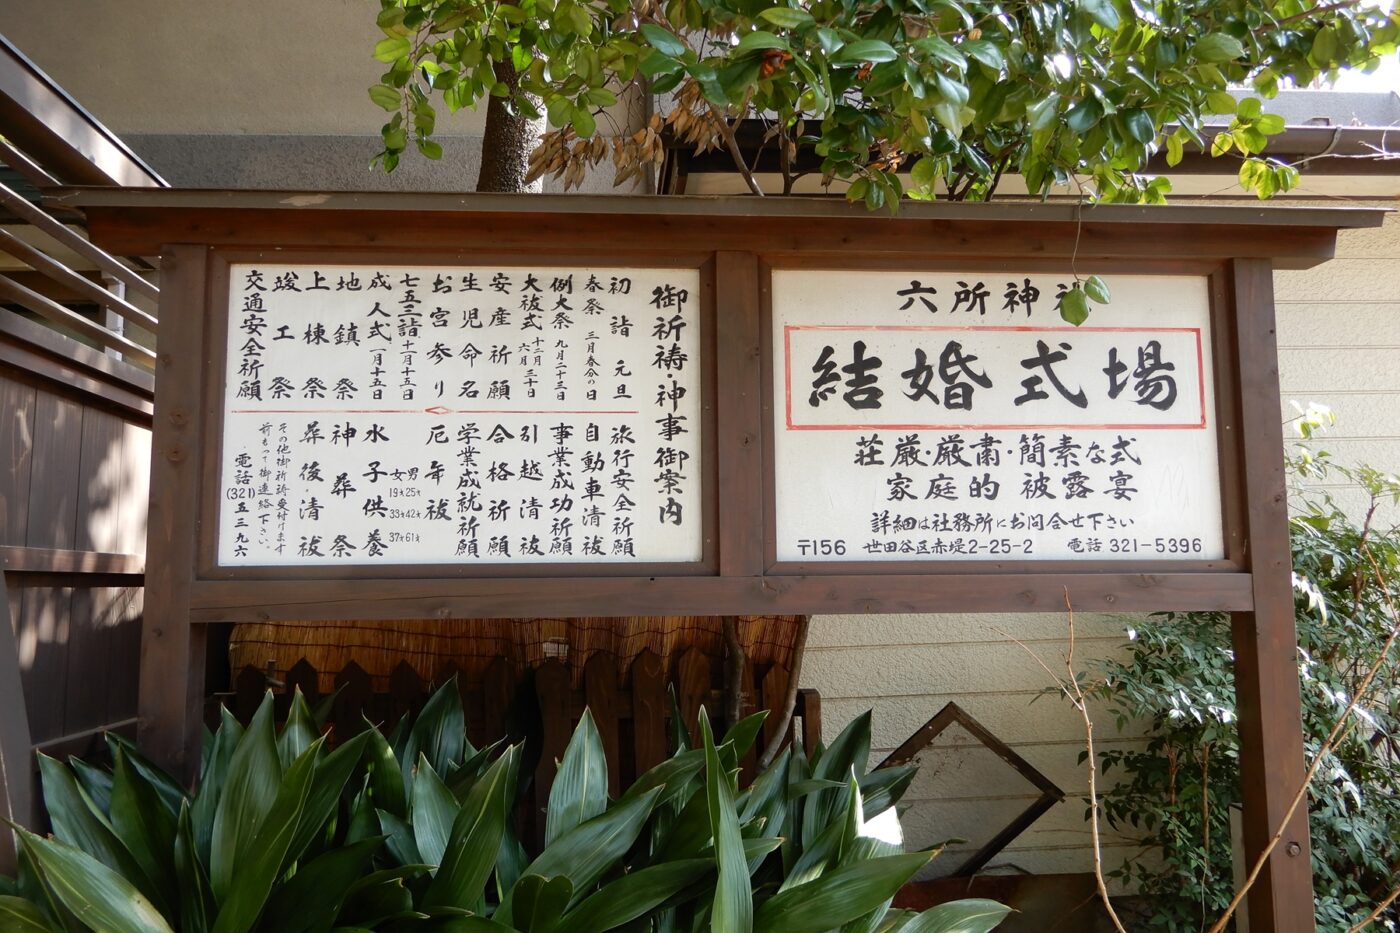 御祈祷・神事御案内
初詣 元旦
春祭 三月春分の日
例大祭 九月二十三日
大祓式 十二月 六月 三十日
安産祈願
生児命名
お宮参り
七五三詣 十一月十五日
成人式 一月十五日
地鎮祭
上棟祭
竣工祭
交通安全祈願
旅行安全祈願
自動車清祓
事業成功祈願
引越清祓
合格祈願
学業成就祈願
厄年祓
男 25才 42才 61才
女 19才 33才 37才
水子供養
神葬祭
葬後・清祓
その他御祈祷受付けます
前もって御連絡下さい。
電話(321)五三九六
六所神
結婚式場
荘厳・厳粛・簡素な式
家庭的 被露宴
詳細は社務所にお問合せ下さい
〒156 世田谷区赤堤2-25-2 電話 321-5396